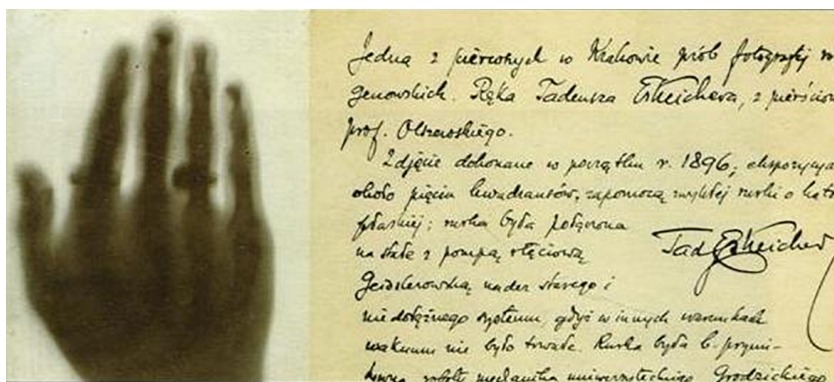 Jedna z pierwszych w Krakowie prób fotografij r
genowskich. Ręka Tadeusza Estreichera, z pierścion
prof. Olszewskiego.
Zdjęcie dokonane w początku r. 1896; ekspozycja
około pięciu kwadransów, zapomocą zwykłej rurki o kat
płaskiej; rurka była połączona
na stałe z pompą rtęciową
Geisslerowską nader starego i
niedołężnego systemu, gdyż w innych warunkach
vakuum nie było trwałe. Rurka była b. prymi-
tywną robotą mechanika uniwersyteckiego Grodzickiego
Tad Estreicher